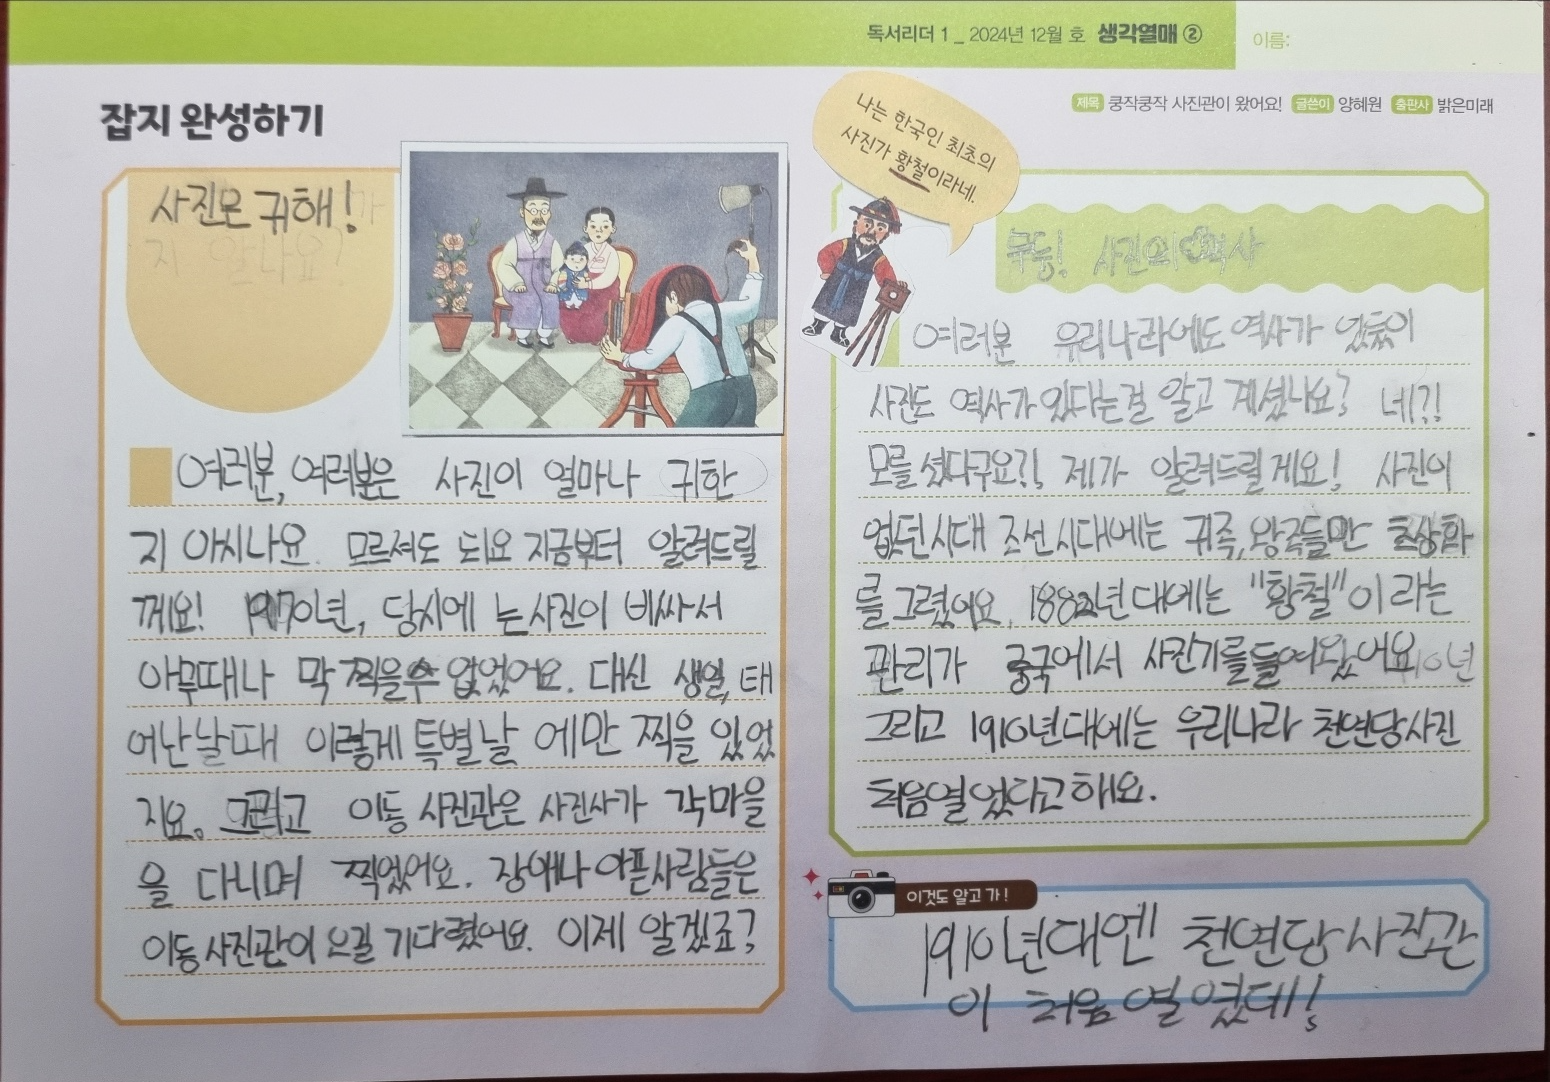 독서리더 1 _ 2024년 12월 호 생각열매 ②
이름:
제목 쿵작쿵작 사진관이 왔어요! 글쓴이 양혜원 출판사 밝은미래
잡지 완성하기
사진은 귀해!
지 알나요?
여러분, 여러분은 사진이 얼마나 귀한
지 아시나요. 모르셔도 되요 지금부터 알려드릴
께요! 년, 당시에 는 사진이 비싸서
아무때나 막 찍을수 없었어요. 대신 생일, 태
어난날때 이렇게 특별날 에만 찍을 있었
지요. 그리고 이동 사진관은 사진사가 각마을
을 다니며 찍었어요. 장애나 아픈사람들은
이동 사진관이 오길 기다렸어요. 이제 알겠죠?
나는 한국인 최초의
사진가 황철이라네.
사진의 역사
여러분 우리나라에도 역사가 있듯이
사진도 역사가 있다는걸 알고 계셨나요? 네?!
모를 셨다구요?! 제가 알려드릴게요! 사진이
없던시대 조선시대에는 귀족, 왕족들만 초상화
를 그렸어요. 1882년대에는 "황철"이 라는
관리가 중국에서 사진기를 들여왔어요 10년
그리고 1910년대에는 우리나라 천연당사진
처음열었다고해요.
이것도 알고 가!
1910년대엔 천연당사진관
이 처음 열였데!